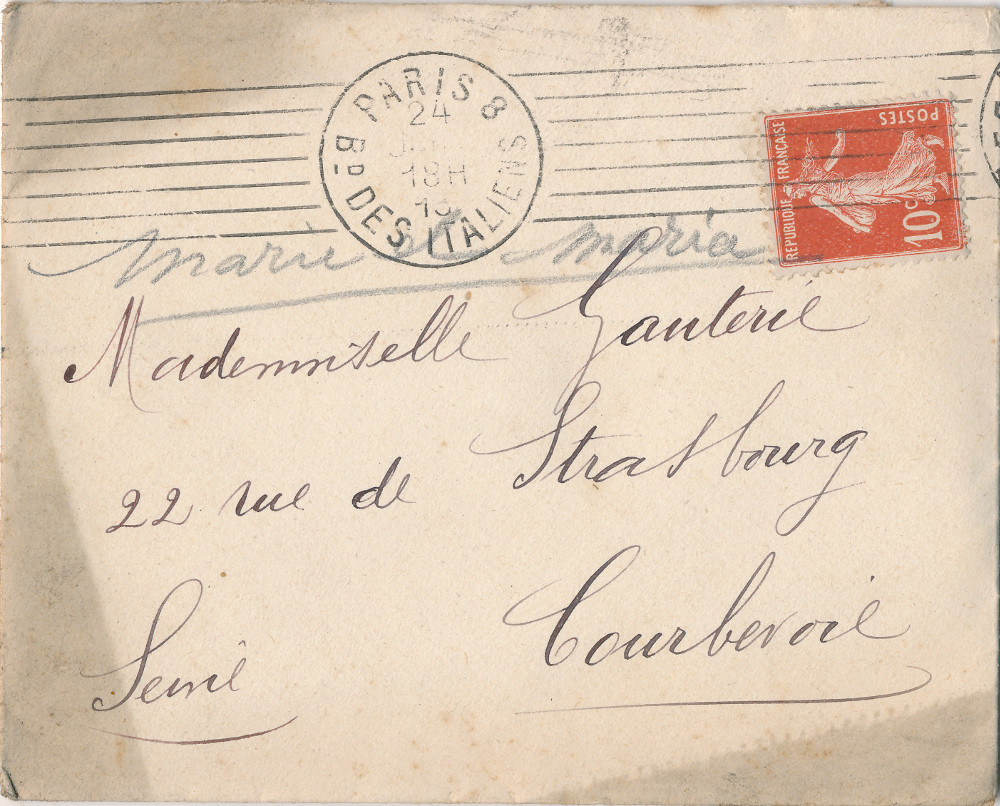 PARIS 8
24
18H
13
Bᴅ DES ITALIENS
RÉPUBLIQUE FRANÇAISE
POSTES
10c
Marie et Maria
Mademoiselle Gauterie
22 rue de Strasbourg
Courbevoie
Seine